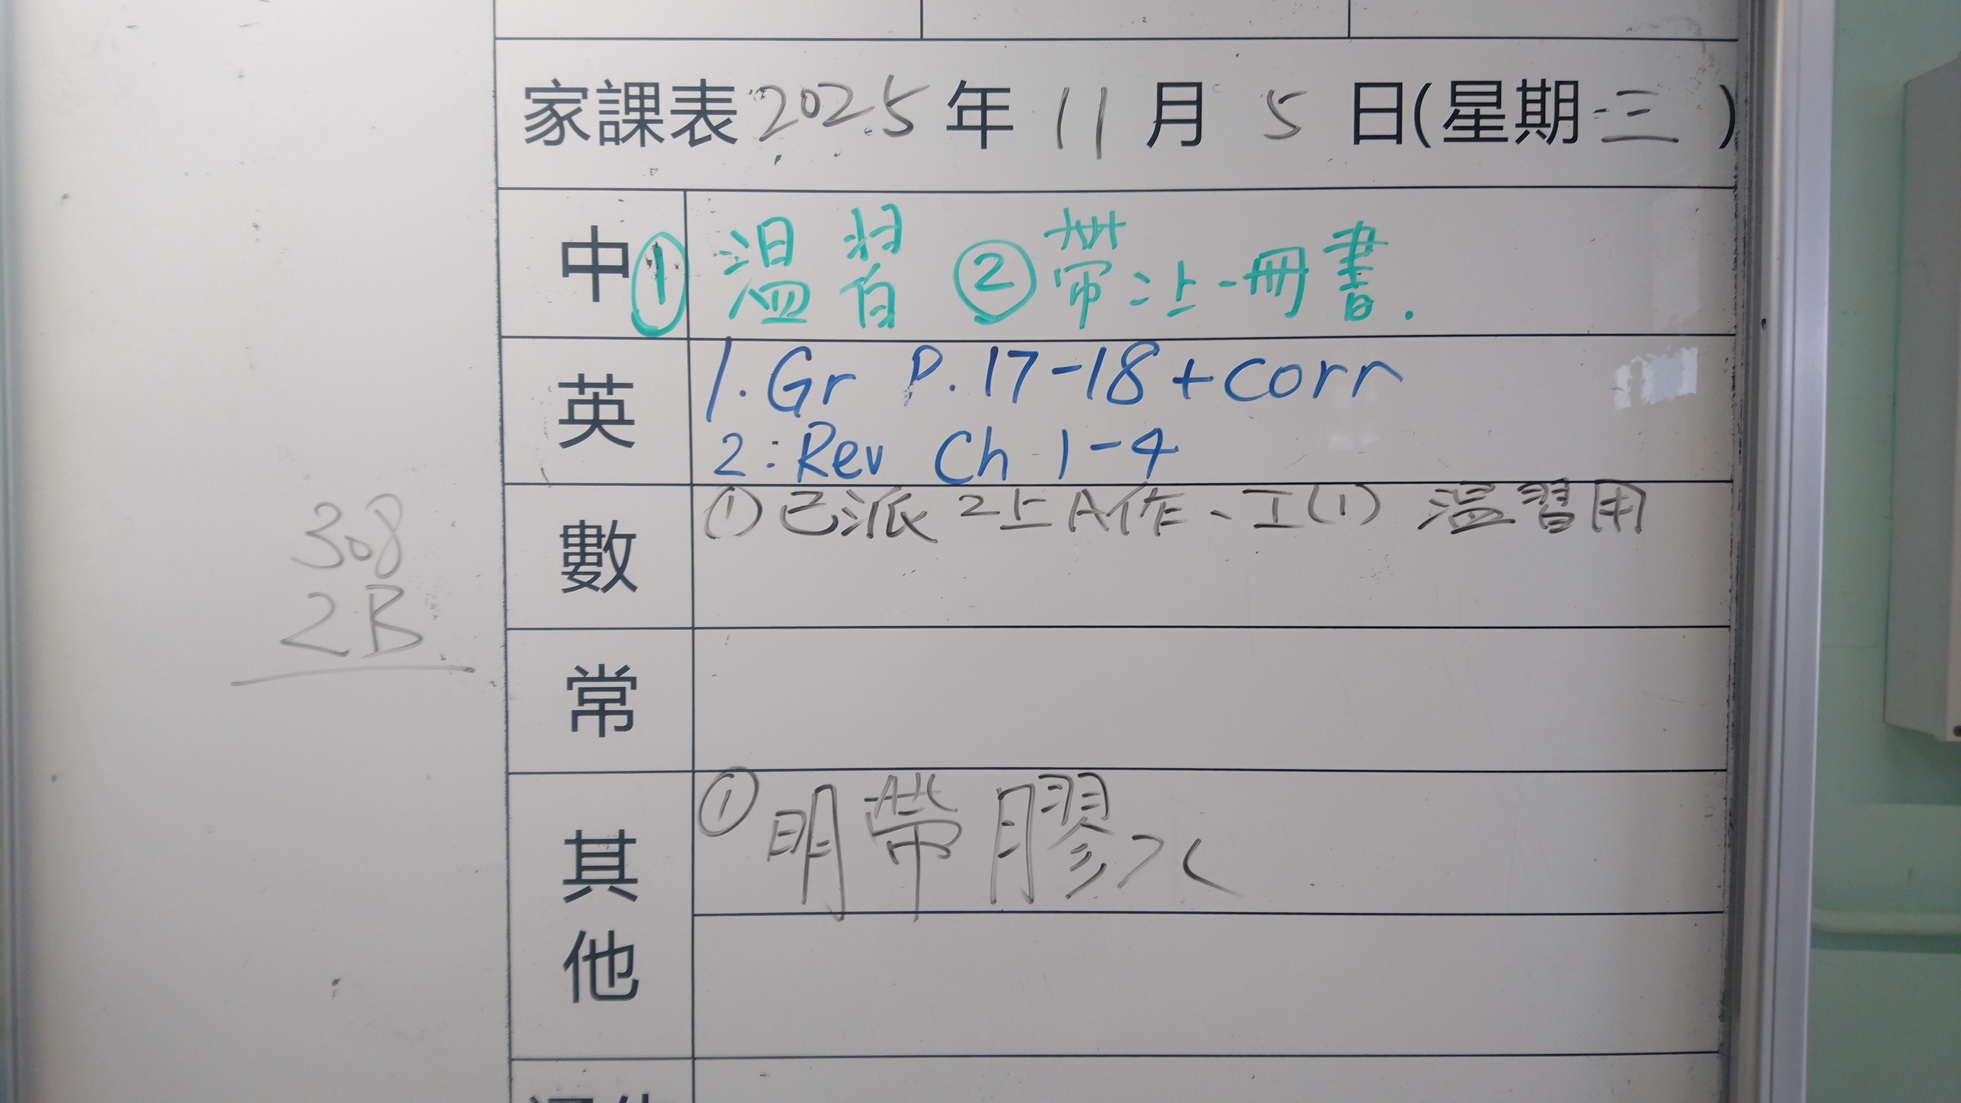 家課表2025年11月5日(星期三)
中 ① 溫習 ② 帶二上一冊書.
英 1. Gr P. 17-18 + corr
2: Rev Ch 1-4
數 ① 已派 2上A作、工(1) 溫習用
308
2B
常
其他 ① 明帶膠水